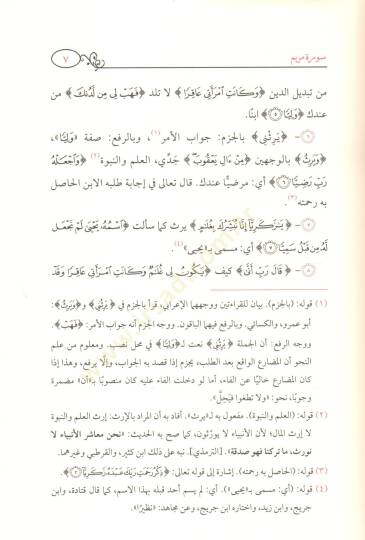 سورة مريم
٧
من تبديل الدين ﴿وَكَانَتِ امْرَأَتِي عَاقِرًا﴾ لا تلد ﴿فَهَبْ لِي مِن لَّدُنكَ﴾ من
عندك ﴿وَلِيًّا ٥﴾ ابنًا.
٦- ﴿يَرِثُنِي﴾ بالجزم: جواب الأمر(١)، وبالرفع: صفة «وليًّا»،
﴿وَيَرِثُ﴾ بالوجهين ﴿مِنْ ءَالِ يَعْقُوبَ﴾ جَدِّي، العلم والنبوة(٢) ﴿وَاجْعَلْهُ
رَبِّ رَضِيًّا ٦﴾ أي: مرضيًّا عندك. قال تعالى في إجابة طلبه الابن الحاصل
به رحمته(٣).
٧- ﴿يَٰزَكَرِيَّآ إِنَّا نُبَشِّرُكَ بِغُلَٰمٍ﴾ يرث كما سألت ﴿اسْمُهُ يَحْيَىٰ لَمْ نَجْعَل
لَّهُ مِن قَبْلُ سَمِيًّا ٧﴾ أي: مسمى بـ«يحيى»(٤).
٨- ﴿قَالَ رَبِّ أَنَّىٰ﴾ كيف ﴿يَكُونُ لِي غُلَٰمٌ وَكَانَتِ امْرَأَتِي عَاقِرًا وَقَدْ
(١) قوله: (بالجزم). بيان للقراءتين ووجههما الإعرابي، قرأ بالجزم في ﴿يَرِثُنِي﴾ و﴿وَيَرِثُ﴾:
أبو عمرو، والكسائي. وبالرفع فيهما الباقون. ووجه الجزم أنه جواب الأمر: ﴿فَهَبْ﴾.
ووجه الرفع: أن الجملة ﴿يَرِثُنِي﴾ نعت لـ﴿وَلِيًّا﴾ في محل نصب. ومعلوم من علم
النحو أن المضارع الواقع بعد الطلب، يجزم إذا قصد به الجواب، وإلا يرفع، وهذا إذا
كان المضارع خاليًا عن الفاء، أما لو دخلت الفاء عليه كان منصوبًا بـ«أن» مضمرة
وجوبًا، نحو: «ولا تطغوا فيَحِلَّ».
(٢) قوله: (العلم والنبوة). مفعول به لـ«يرث». أفاد به أن المراد بالإرث: إرث العلم والنبوة
لا إرث المال؛ لأن الأنبياء لا يورِّثون، كما صح به الحديث: «نحن معاشر الأنبياء لا
نورث، ما تركنا فهو صدقة». [الترمذي]. نبه على ذلك ابن كثير، والقرطبي وغيرهما.
(٣) قوله: (الحاصل به رحمته). إشارة إلى قوله تعالى: ﴿ذِكْرُ رَحْمَتِ رَبِّكَ عَبْدَهُ زَكَرِيَّآ ٢﴾.
(٤) قوله: (أي: مسمى بـ«يحيى»). أي: لم يسم أحد قبله بهذا الاسم، كما قال قتادة، وابن
جريج، وابن زيد، واختاره ابن جرير، وعن مجاهد: «نظيرًا».